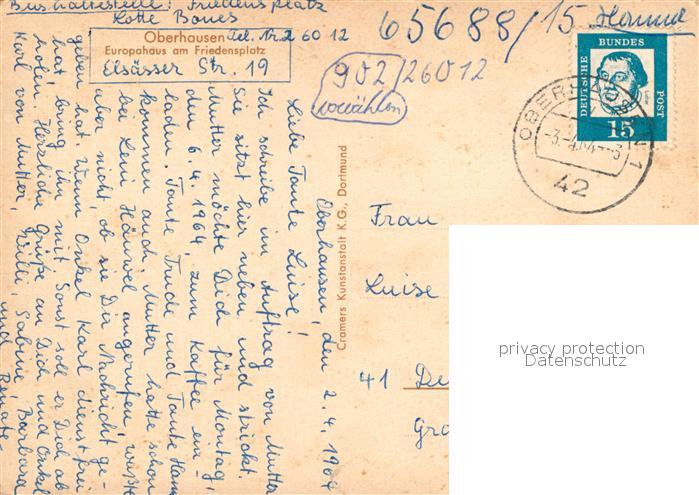 Bushaltestelle: Friedensplatz
Lotte Boues
Tel. Nr. 2 60 12
Oberhausen
Europahaus am Friedensplatz
Elsässer Str. 19
65688/15 Hammel
902/26012
vorwählen
DEUTSCHE BUNDES POST
15
OBERHAUSEN 1
42
Oberhausen, den 2.4.1964
Liebe Tante Luise!
Ich schreibe im Auftrag von Mutter.
Sie sitzt hier neben und strickt.
Mutter möchte Dich für Montag,
den 6.4.1964, zum Kaffee ein-
laden. Tante Trude und Tante Hann
kommen auch. Mutter hatte schon
bei Leni angerufen, wußte
aber nicht, ob sie Dir Nachricht ge-
geben hat. Wenn Onkel Karl dienstfrei
hat, bring ihn mit. Sonst soll er Dich ab
holen. Herzliche Grüße an Dich und Onkel
Karl von Mutter, Willi, Sabine, Barbara
und Renate.
Cramers Kunstanstalt K.G., Dortmund
Frau
Luise
41
privacy protection
Datenschutz